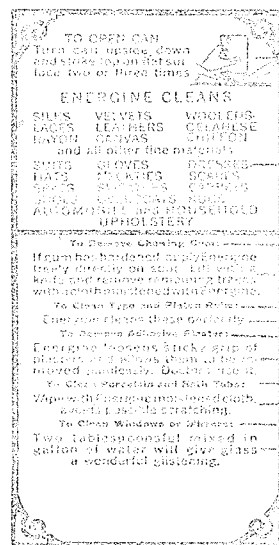 TO OPEN CAN
Turn can upside down
and strike top on flat sur-
face two or three times
ENERGINE CLEANS
SILKS VELVETS WOOLENS
LACES LEATHERS CELANESE
RAYON CANVAS CHIFFON
and all other fine materials
SUITS GLOVES DRESSES
HATS NECKTIES SCARFS
SPATS SLIPPERS CARPETS
SHOES RUGS
AUTOMOBILE and HOUSEHOLD
UPHOLSTERY
To Remove Chewing Gum:
If gum has hardened apply Energine
freely directly on spot. Lift with a
knife and remove remaining traces
with cloth moistened with Energine.
To Clean Type and Platen Rolls:
Energine cleans these perfectly.
To Remove Adhesive Plaster:
Energine loosens sticky grip of
plasters and allows them to be re-
moved painlessly. Doctors use it.
To Clean Porcelain and Bath Tubs:
Wipe with Energine moistened cloth,
avoids possible scratching.
To Clean Windows or Mirrors:
Two tablespoonsful mixed in
gallon of water will give glass
a wonderful glistening.